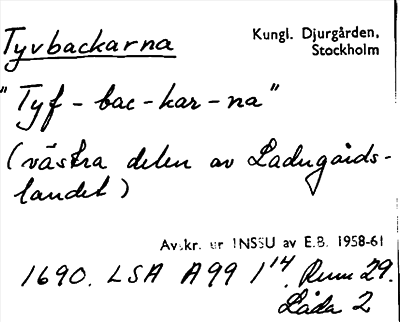 Tyvbackarna
Kungl. Djurgården,
Stockholm
"Tyf-bac-kar-na"
(västra delen av Ladugårds-
landet)
Avskr. ur INSSU av E.B. 1958-61
1690. LSA A99 1¹⁴. Rum 29.
Låda 2